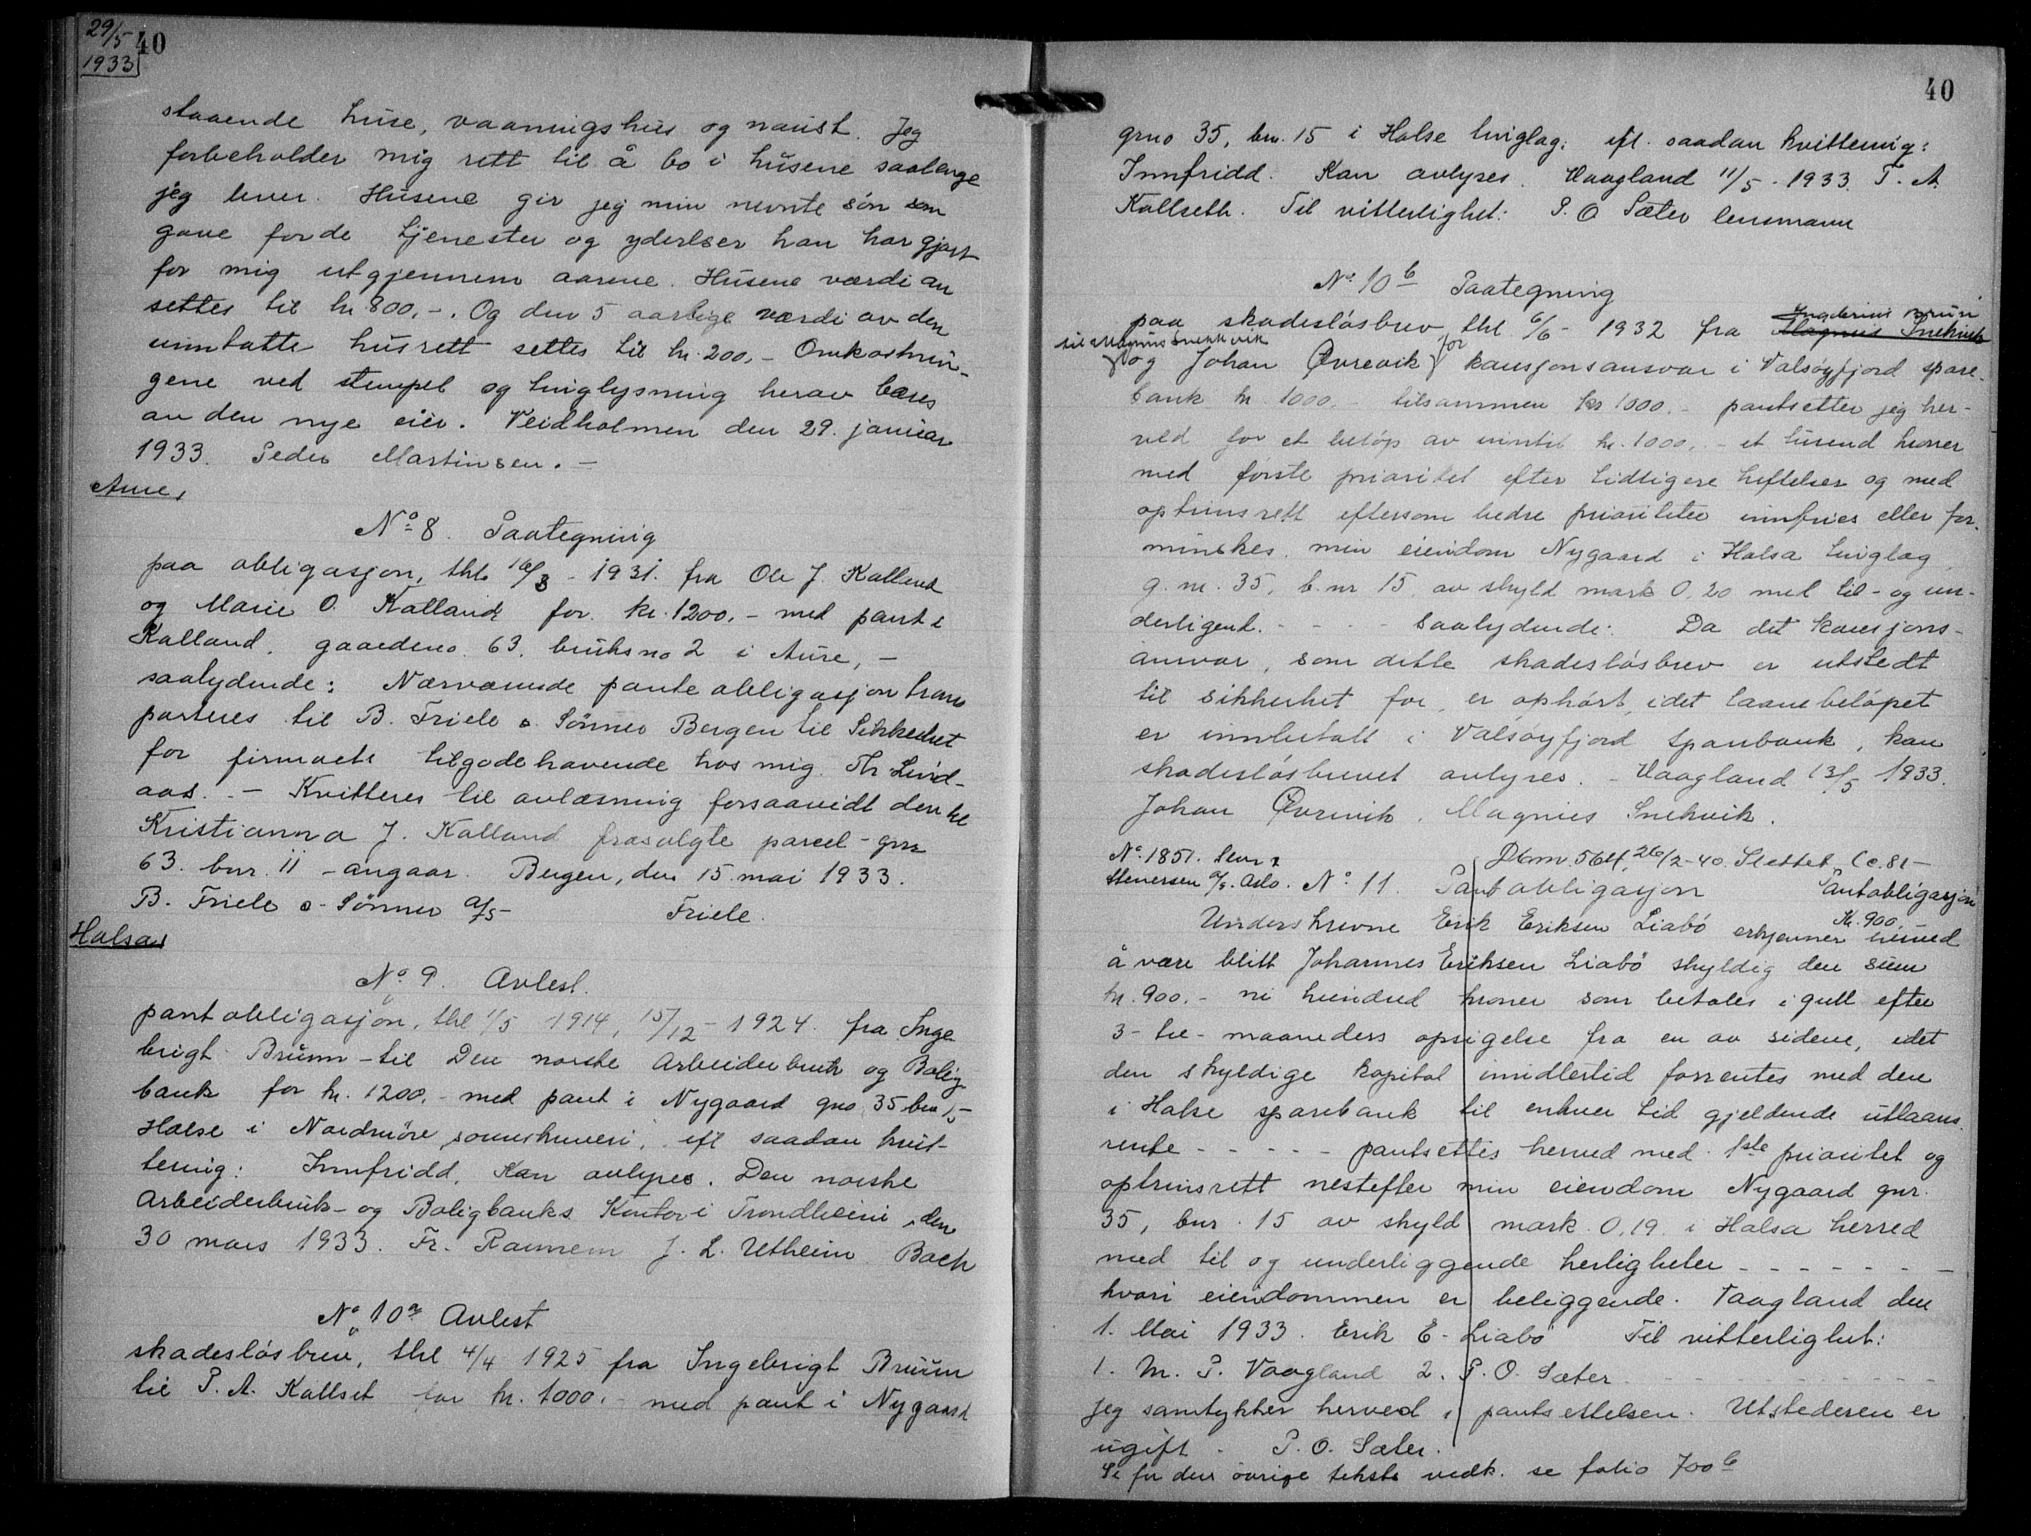 29/5
1933
40
staaende huse, vaaningshus og naust. Jeg
forbeholder mig rett til å bo i husene saalenge
jeg lever. Husene gir jeg min nevnte sön som
gave for de tjenester og yderlser han har gjort
for mig utgjennem aarene. Husene værdi an
settes til kr 800,-. Og den 5 aarlige værdi av den
innfatte husrett settes til kr. 200,- Omkostnin-
gene ved stempel og tinglysning herav bæres
av den nye eier. Veidholmen den 29. januar
1933. Peder Martinsen. -
Aure,
No 8. Paategning
paa obligasjon, thl. 16/3 - 1931. fra Ole J. Kalland
og Marie O. Kalland for kr. 1200,- med pant i
Kalland, gaardsno. 63, bruksno 2 i Aure, -
saalydende: Nærværende pante obligasjon trans
porteres til B. Friele & Sönner Bergen til Sikkerhet
for firmaets tilgodehavende hos mig. Th Lind-
aas. - Kvitteres til avlæsning forsaavidt den til
Kristianna J. Kalland frasolgte parcel - gnr
63. bnr. 11 - angaar. Bergen, den 15. mai 1933.
B. Friele & Sönner a/s - Friele.
Halsa,
No 9. Avlest.
pantobligasjon, thl 1/5 1914, 15/12 - 1924. fra Inge
brigt Bruun - til Den norske Arbeiderbruk og Bolig
bank for kr. 1200,- med pant i Nygaard gno 35 bno 15
Halse i Nordmöre sorenskriveri, efl saadan kvit-
tering: Innfridd. Kan avlyses. Den norske
Arbeiderbruk- og Boligbanks Kontor i Trondheim, den
30 mars 1933. Fr. Raunem J. L. Utheim Bach
No 10a Avlest
skadeslösbrev, thl 4/4 1925 fra Ingebrigt Bruun
til P. A. Kallset for kr. 1000,- med pant i Nygaard
40
gno 35, bn. 15 i Halse tinglag, efl. saadan kvittering:
Innfridd. Kan avlyses. Vaagland 11/5 - 1933. P. A.
Kallseth. Til vitterlighet: P. O Sæter lensmann
No 10b Paategning
Bruun
paa skadeslösbrev, thl 6/6 - 1932 fra Magnus Snekvik
til Magnus Snekkvik for
og Johan Øvrevik kausjonsansvar i Valsöyfjord spare-
bank kr. 1000,- tilsammen kr 1000,- pantsetter jeg her-
ved for et belöp av inntil kr. 1000,- et tusend kroner
med förste prioritet efter tidligere heftelser og med
optrinsrett eftersom bedre prioriteter innfries eller for-
minskes, min eiendom Nygaard i Halsa tinglag,
g. nr. 35, b. nr 15, av skyld mark 0,20 med til- og un-
derligend. - - - - saalydende: Da det kausjons-
ansvar, som dette skadeslösbrev er utstedt
til sikkerhet for, er ophört, idet laanebelöpet
er innbetalt i Valsöyfjord sparebank, kan
skadeslösbrevet avlyses. - Vaagland 13/5 1933.
Johan Øvrevik. Magnus Snekvik.
No. 1851.
Stenersen a/s. Oslo.
Dbnr. 564, 26/2-40. Slettet
No 11. Pantobligasjon
Pantobligasjon
Kr. 900,-
Underskrevne Erik Eriksen Liabö erkjenner herved
å være blitt Johannes Eriksen Liabö skyldig den sum
kr. 900.- ni hundred kroner som betales i gull efter
3- tre- maaneders opsigelse fra en av sidene, idet
den skyldige kapital imidlertid forrentes med den
i Halse sparebank til enhver tid gjeldende utlaans-
rente - - - - - pantsettes herved med 1ste prioritet og
optrinsrett nestefter min eiendom Nygaard gnr.
35, bnr. 15 av skyld mark 0,19 i Halsa herred
med til og underliggende herligheter - - - - - - -
hvori eiendommen er beliggende. Vaagland den
1. Mai 1933. Erik E. Liabö Til vitterlighet:
1. M. P. Vaagland 2. P. O. Sæter - - - - - -
jeg samtykker herved i pantsettelsen. Utstederen er
ugift. P. O. Sæter.
for den övrige teksts vedk. se folio 700b